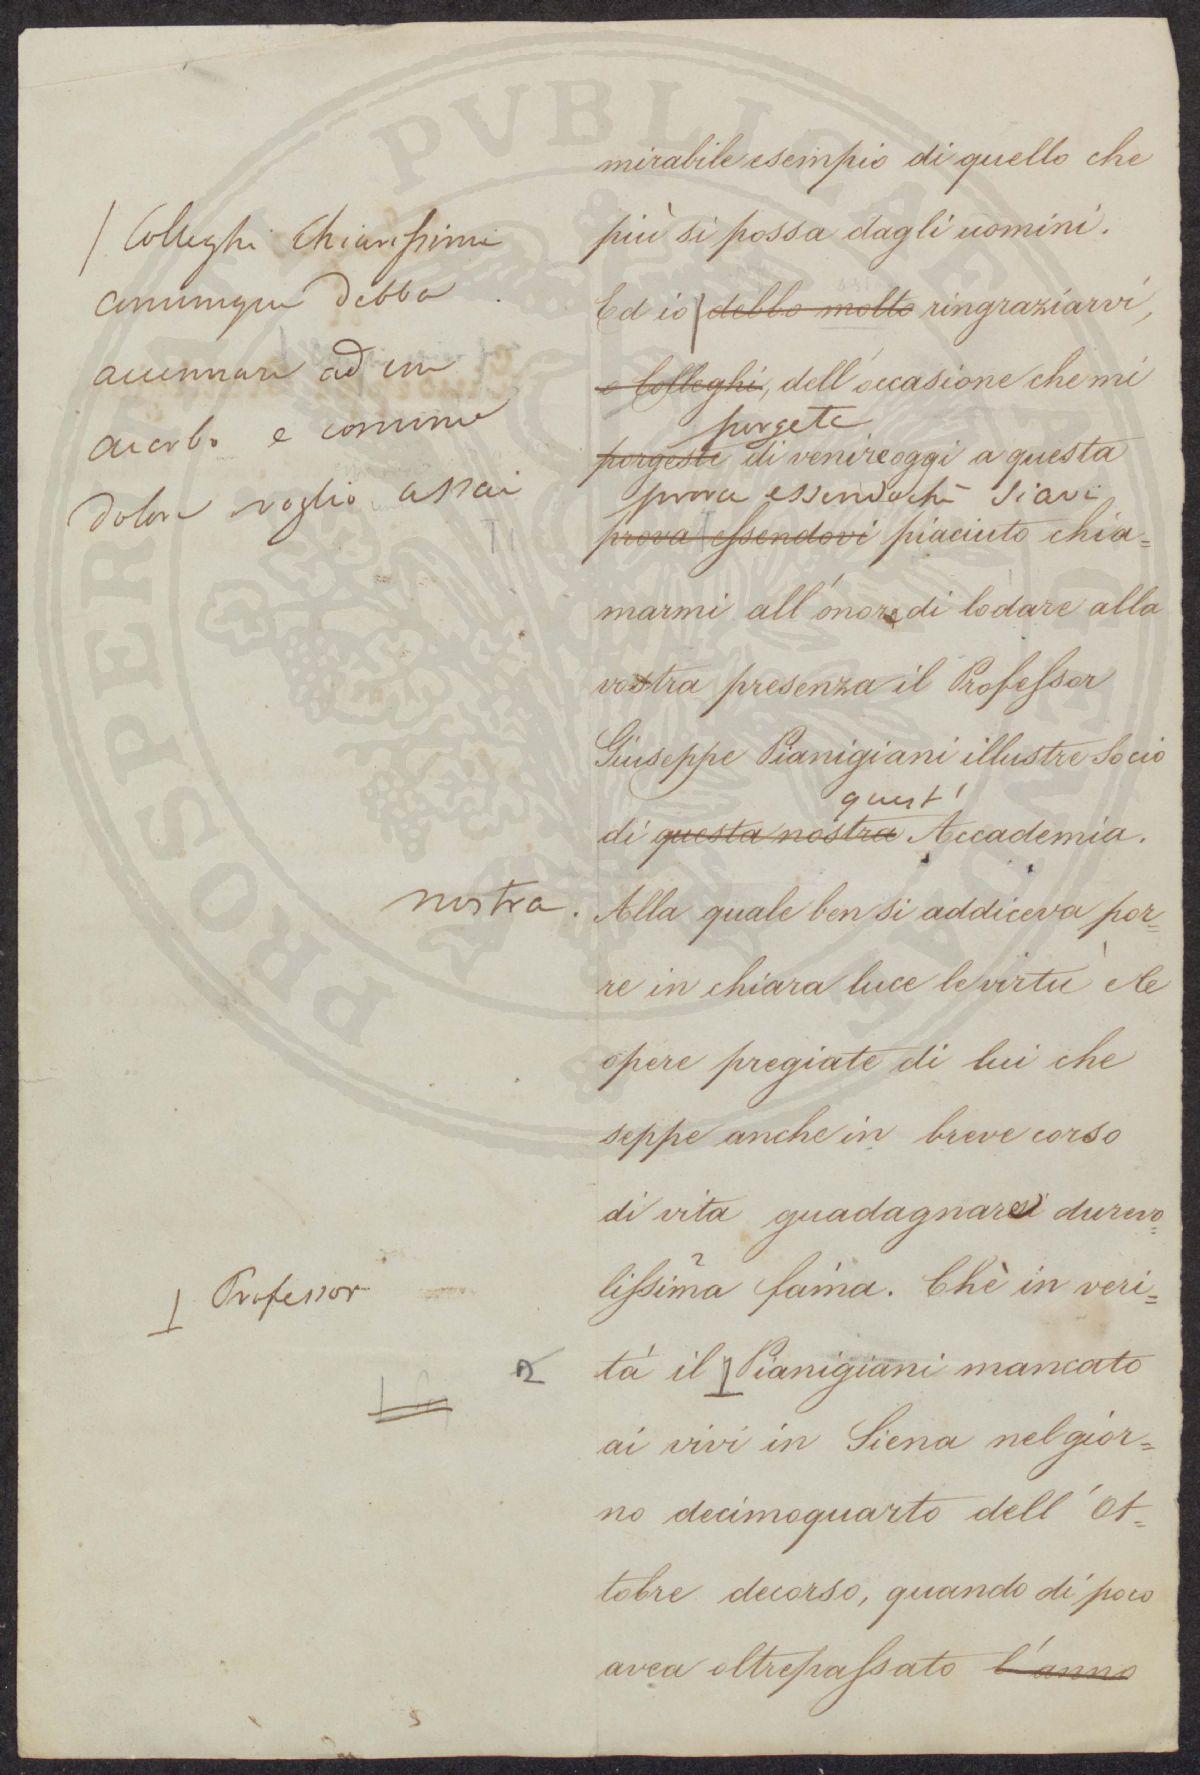 mirabile esempio di quello che
più si possa dagli uomini.
/ Colleghi Chiarissimi
comunque debba
accennare ad un
acerbo e comune
dolore voglio assai
Ed io / debbo molto ringraziarvi,
o Colleghi, dell'occasione che mi
porgete
porgeste di venire oggi a questa
prova essendochè siavi
prova essendovi piaciuto chia=
marmi all'onore di lodare alla
vostra presenza il Professor
Giuseppe Pianigiani illustre Socio
quest'
di questa nostra Accademia.
nostra.
Alla quale ben si addiceva por=
re in chiara luce le virtù e le
opere pregiate di lui che
seppe anche in breve corso
di vita guadagnarsi durevo=
lissima fama. Chè in veri=
Professor
tà il Pianigiani mancato
ai vivi in Siena nel gior=
no decimoquarto dell'Ot=
tobre decorso, quando di poco
avea oltrepassato l'anno
PROSPERITATI PVBLICAE